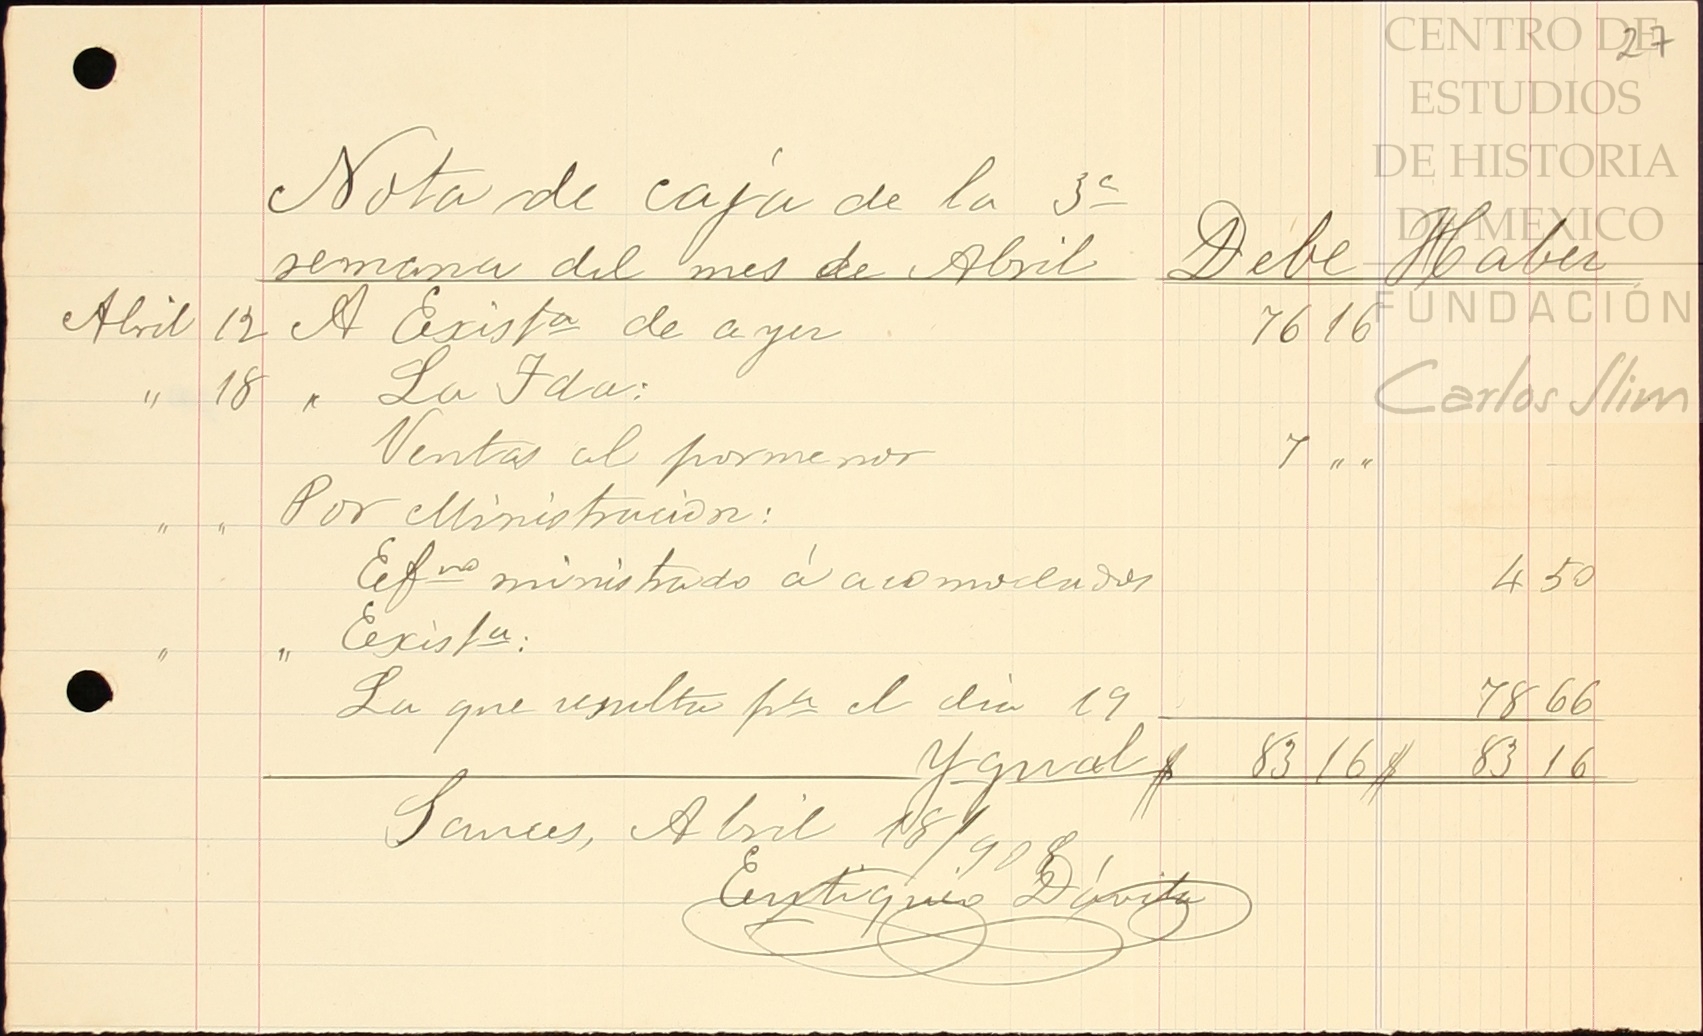 27
CENTRO DE
ESTUDIOS
DE HISTORIA
DE MEXICO
FUNDACIÓN
Carlos Slim
Nota de caja de la 3ª
semana del mes de Abril Debe Haber
Abril 12 A Existª de ayer 76 16
" 18 " La Fda:
Ventas al pormenor 7 " "
" " Por Ministracion:
Eefvo ministrado á acomodados 4 50
" " Eexistª:
La que resulta pª el dia 19 78 66
Ygual $ 83 16 $ 83 16
Sauces, Abril 18/908
Eutiquio Dávila